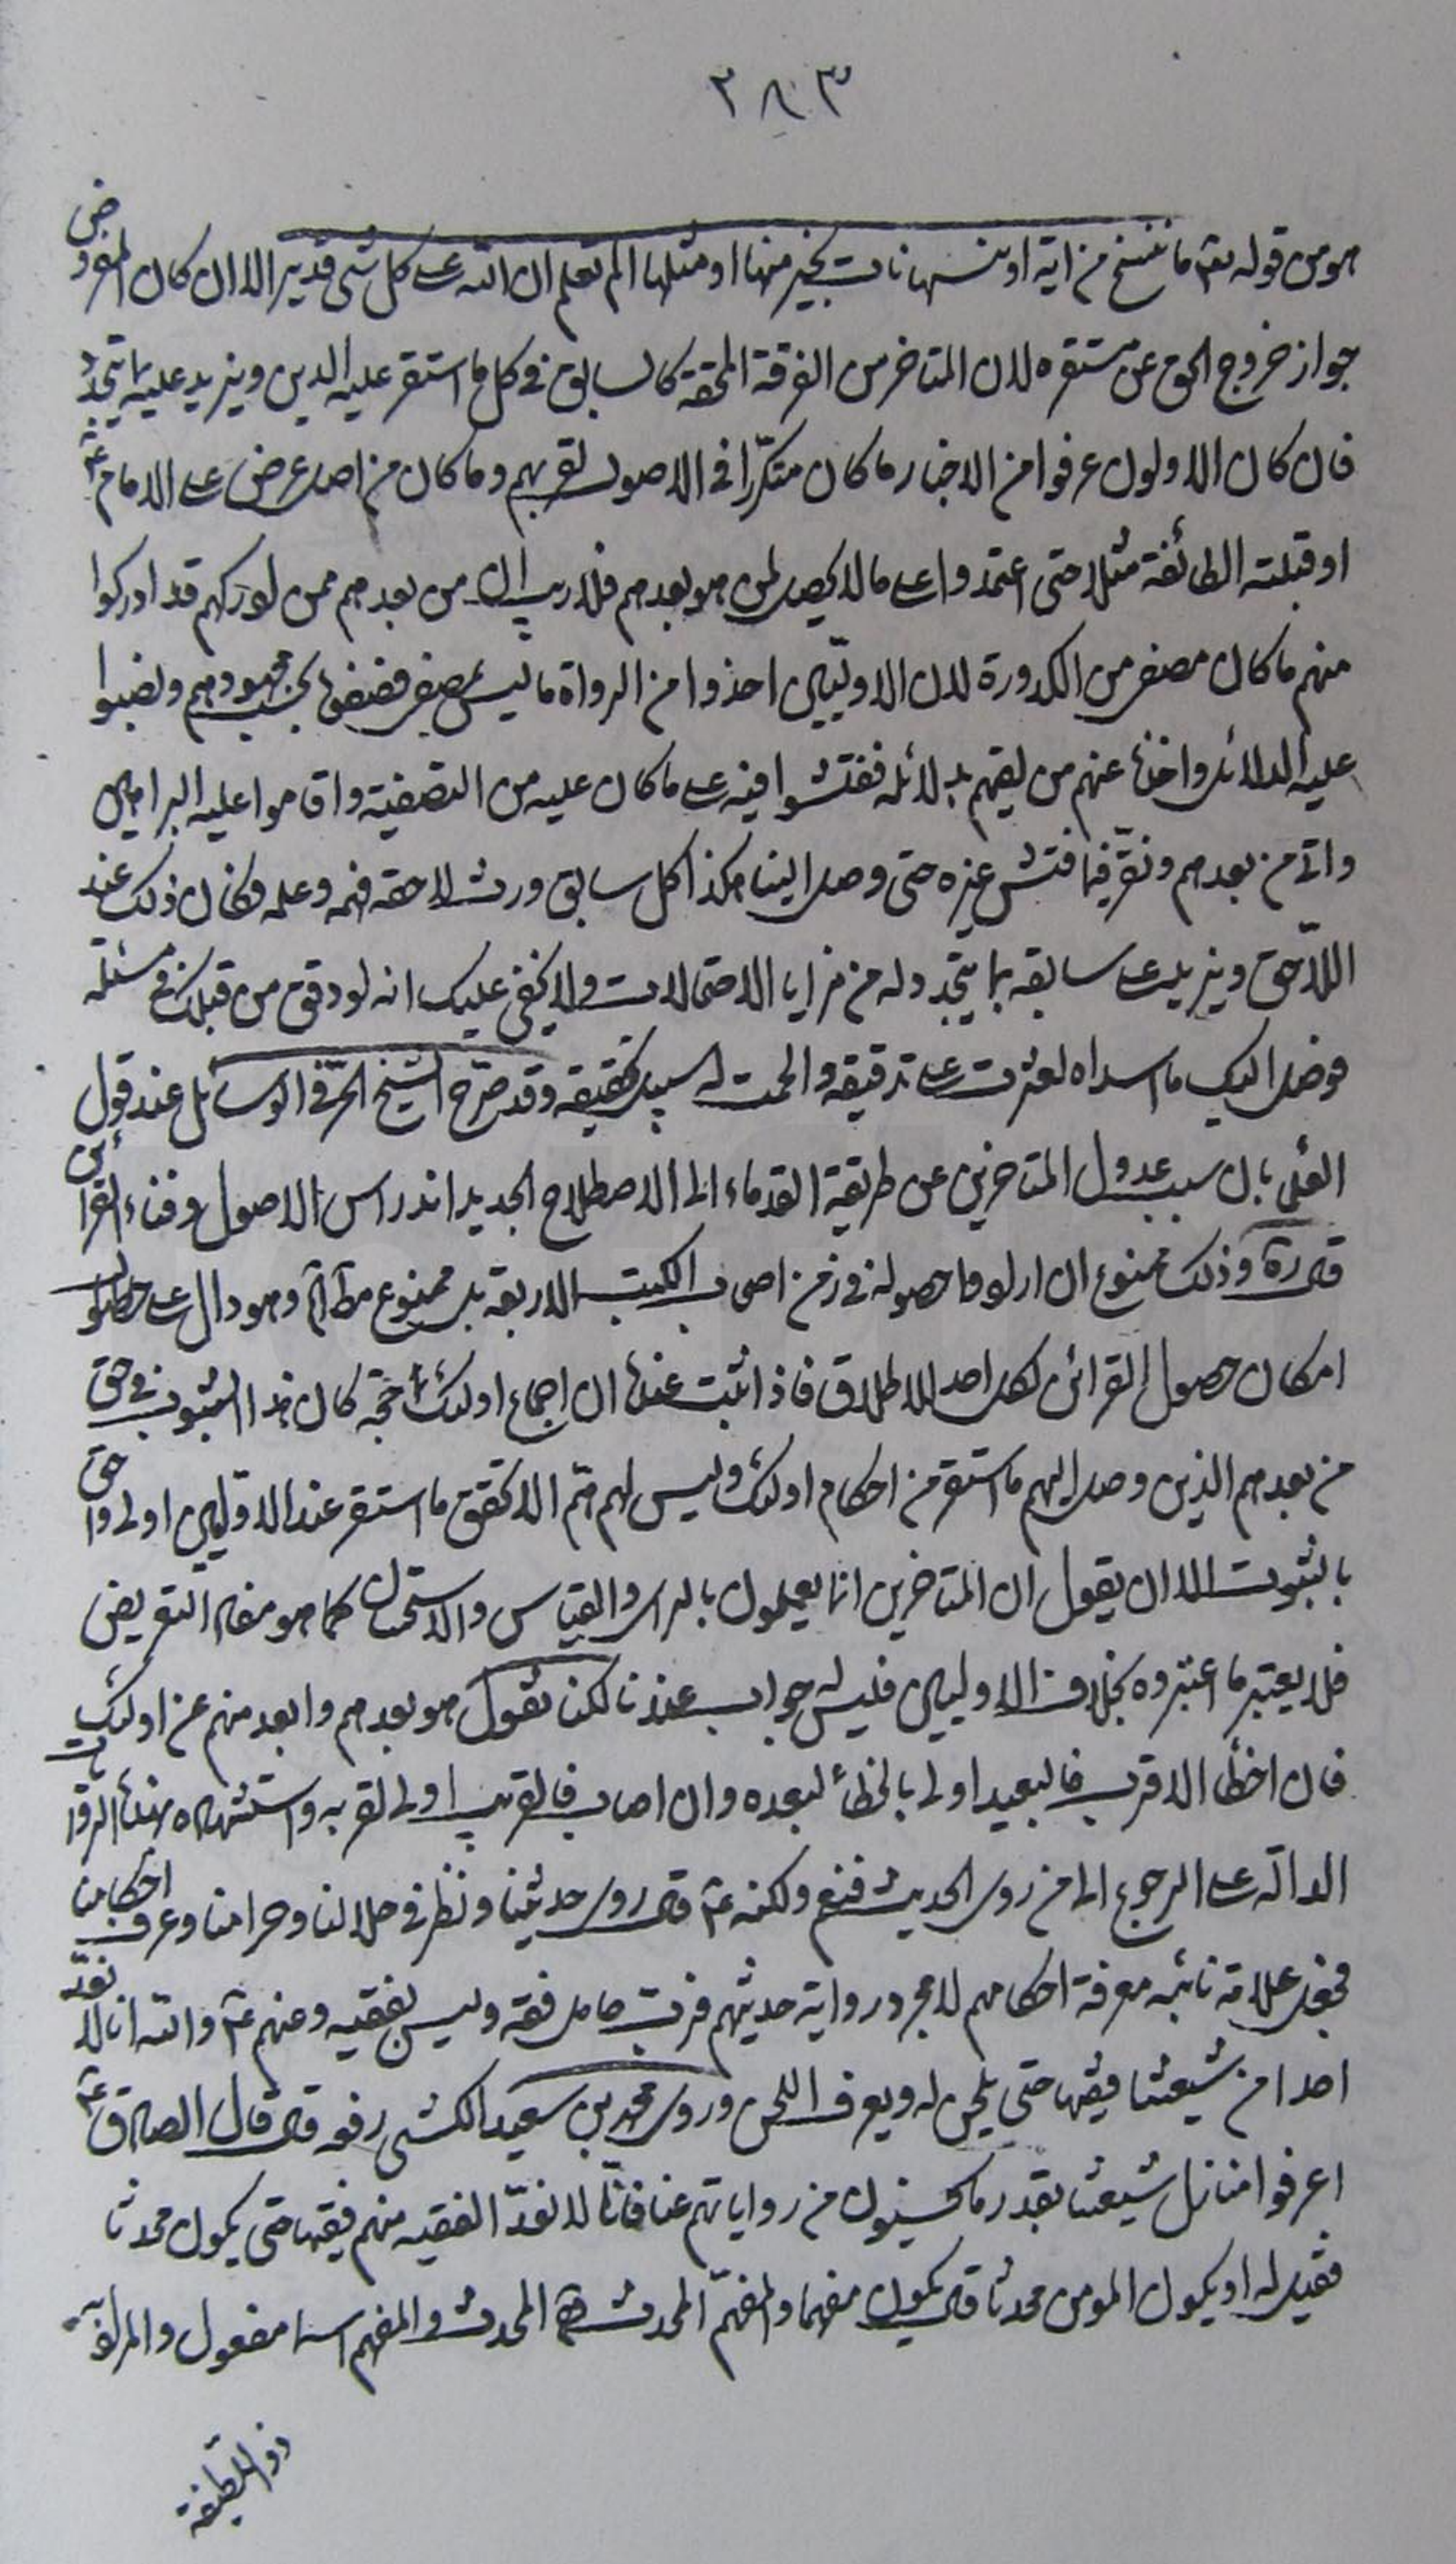 ٢٨٣
هو من قوله تعم ما ننسخ من اية او ننسها نات بخير منها او مثلها الم تعلم ان الله على كل شى قدير الا ان كان المعروض
جواز خروج الحق عن مستقره لان المتاخر من الفرقة المحقة كالسابق فى كل ما استقر عليه الدين ويزيد عليه بما يتجدد
فان كان الاولون عرفوا من الاخبار ما كان متكررا فى الاصول لقربهم وما كان من اصل عرض على الامام ع
او قبلته الطائفة مثلا حتى اعتمدوا على ما لا يحصل لمن هو بعدهم فلا ريب ان من بعدهم ممن لم يدركهم قد ادركوا
منهم ما كان مصفى من الكدورة لان الاوليين اخذوا من الرواة ما ليس بمصفى فصفوه بحسب جهودهم ونصبوا
عليه الدلائل واخذه عنهم من لقيهم بدلائله ففتشوا فيه على ما كان عليه من التصفية واقاموا عليه البراهين
واتى من بعدهم ونقر فيما فتش غيره حتى وصل الينا هكذا كل سابق ورث لاحقه فهمه وعلمه فكان ذلك عند
اللاحق ويزيد على سابقه بما يتجدد له من مزايا الاحتمالات ولا يخفى عليك انه لو دقق من قبلك فى مسئلة
فوصل اليك ما اسداه لعثرت على تدقيقه والحمت له سبيل تحقيقه وقد صرح الشيخ الحر فى الوسائل عند قول
العلى بان سبب عدول المتاخرين عن طريقة القدماء الى الاصطلاح الجديد اندراس الاصول وفناء القرائن
قال ره وذلك ممنوع ان ارادوا حصوله فى زمن اصحاب الكتب الاربعة بل ممنوع مط اه وهو دال على
امكان حصول القرائن لكل احد الاطلاق فاذا ثبت عنده ان اجماع اولئك حجة كان هذا الثبوت فى حق
من بعدهم الذين وصل اليهم ما استقر من احكام اولئك وليس لهم هم الا تحقق ما استقر عند الاولين اولى واحق
بالثبوت الا ان يقول ان المتاخرين انما يعملون بالراى والقياس والاستحسان كما هو مفاد التعريض
فلا يعتبر ما اعتبروه بخلاف الاوليين فليس له جواب عندنا لكنا نقول هو بعدهم وابعد منهم عن اولئك
فان اخطأ الاقرب فالبعيد اولى بالخطأ لبعده وان اصاب فالقريب اولى لقربه واستشهاده بهذه الروايات
الدالة على الرجوع الى من روى الحديث فنعم ولكنه ع قال روى حديثنا ونظر فى حلالنا وحرامنا وعرف احكامنا
فجعل علامة نائبه معرفة احكامهم لا مجرد رواية حديثهم فرب حامل فقه وليس بفقيه وعنهم ع والله انا لا نعد
احدا من شيعتنا فقيها حتى يلحن له ويعرف اللحن وروى محمد بن سعيد الكشى رفعه قال قال الصادق ع
اعرفوا منازل شيعتنا بقدر ما يحسنون من رواياتهم عنا فانا لا نعد الفقيه منهم فقيها حتى يكون محدثا
فقيل له او يكون المومن محدثا قال يكون مفهما والمفهم المحدث المحدث والمفهم اسما مفعول والمراد به
ذو اللطيفة